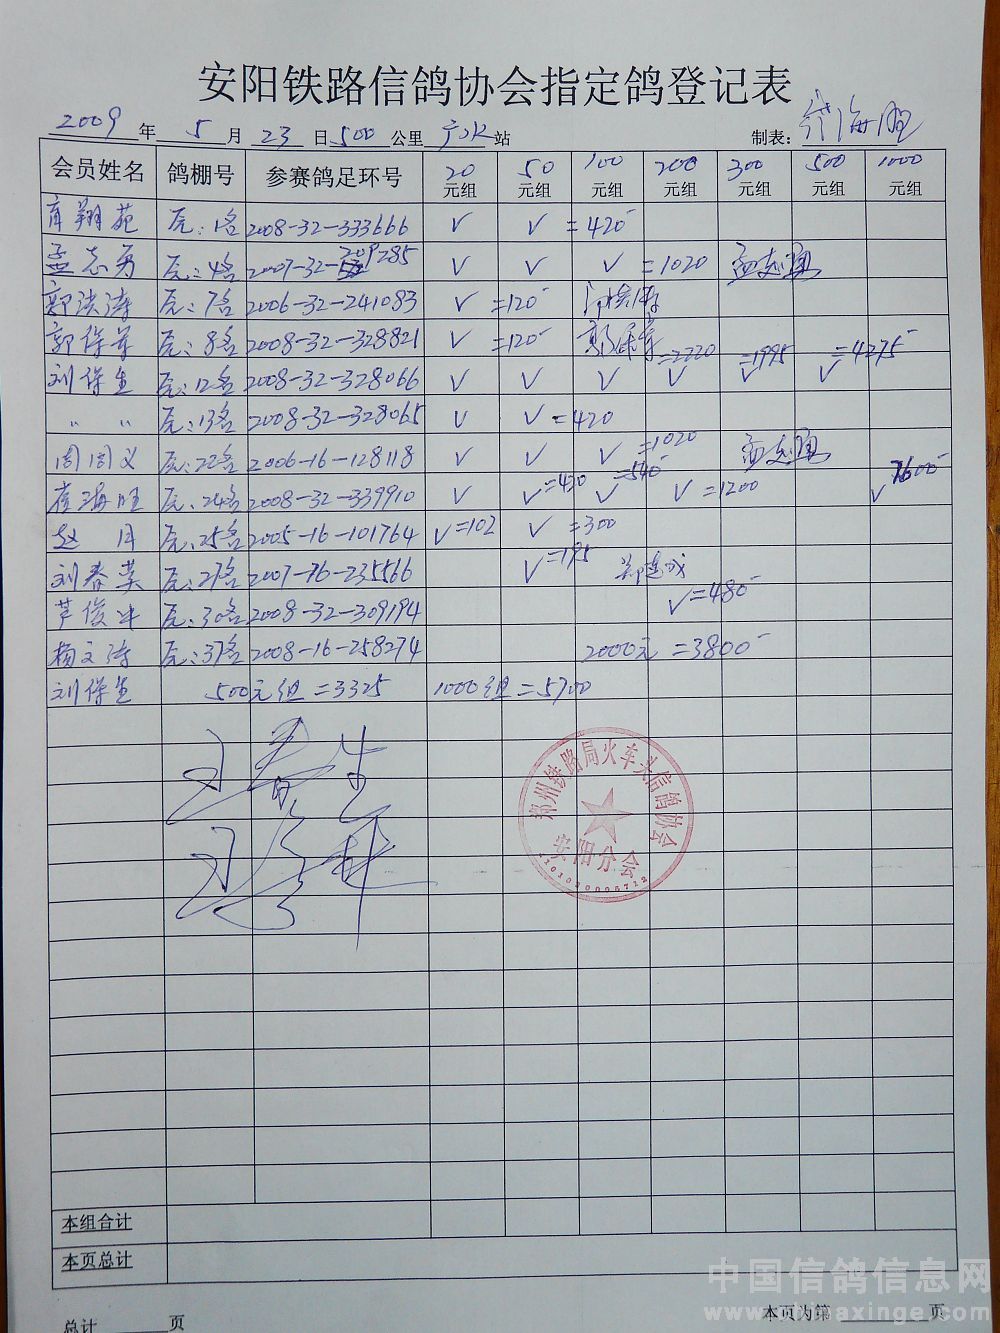 安阳铁路信鸽协会指定鸽登记表
2009 年 5 月 23 日 500 公里 站 制表:
会员姓名 鸽棚号 参赛鸽足环号 20元组 50元组 100元组 200元组 300元组 500元组 1000元组
翔苑 1名 2008-32-333666 √ √ =420
孟志勇 4名 2007-32-209285 √ √ √ =1020
郭洪涛 7名 2006-32-241083 √ =120
郭保军 8名 2008-32-328821 √ =120
刘保生 12名 2008-32-328066 √ √ √ √=2220 √=1995 √=4275
〃 〃 13名 2008-32-328065 √ √ =420
周周义 22名 2006-16-128118 √ √ √ =1020
崔海旺 24名 2008-32-339910 √ √=420 √=540 √=1200 √7600
赵月 25名 2005-16-101764 √=102 √=300
刘春英 27名 2007-16-235566 √=195
芦俊 30名 2008-32-309194 √=480
杨文涛 37名 2008-16-258274 2000元 =3800
刘保生 500元组 =3325 1000组 =5700
郑州铁路局火车头信鸽协会
安阳分会
本组合计
本页总计
总计 页 本页为第 页
中国信鸽信息网
www.chinaxinge.com